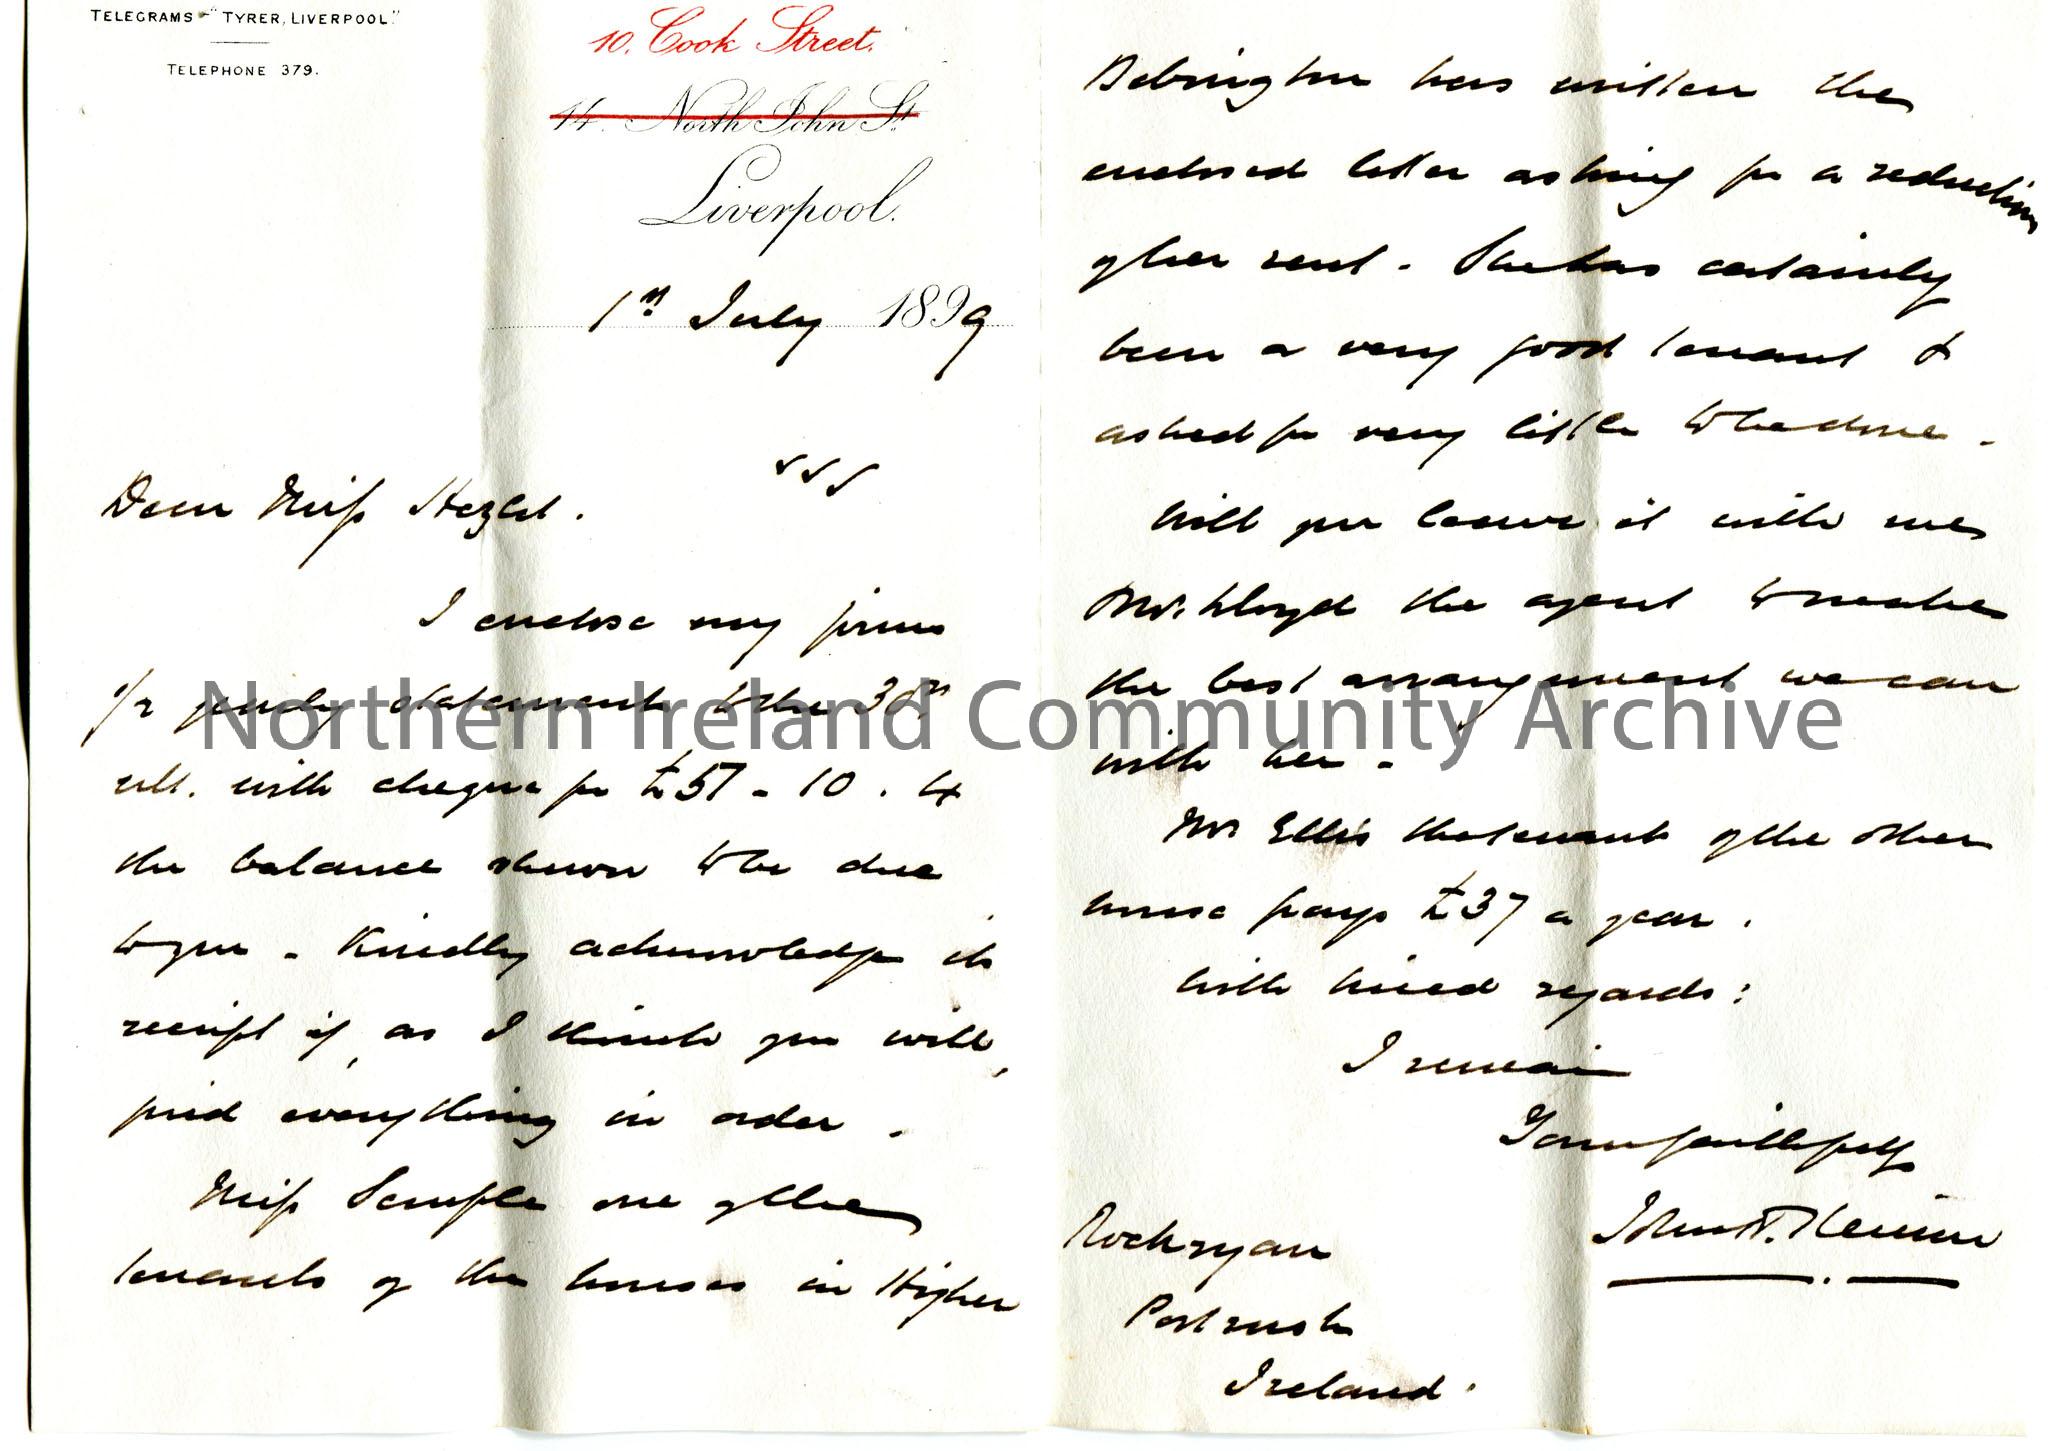 TELEGRAMS - "TYRER, LIVERPOOL."
TELEPHONE 379.
10, Cook Street.
14. North John St
Liverpool.
1st July 1899
Dear Miss Hezlet.
I enclose my firm's
1/2 yearly statement to the 30th
ult. with cheque for £57 - 10 . 4
the balance shewn to be due
to you - Kindly acknowledge its
receipt if, as I think you will,
find everything in order .
Miss Semple one of the
tenants of the houses in Higher
Bebington has written the
enclosed letter asking for a reduction
of her rent - She has certainly
been a very good tenant &
asked for very little to be done -
Will you leave it with me
Mr. Lloyd the agent to make
the best arrangement we can
with her -
Mr Ellis the tenant of the other
house pays £37 a year .
With kind regards :
I remain
Yours faithfully
John T.
Rockryan
Portrush
Ireland .
Northern Ireland Community Archive